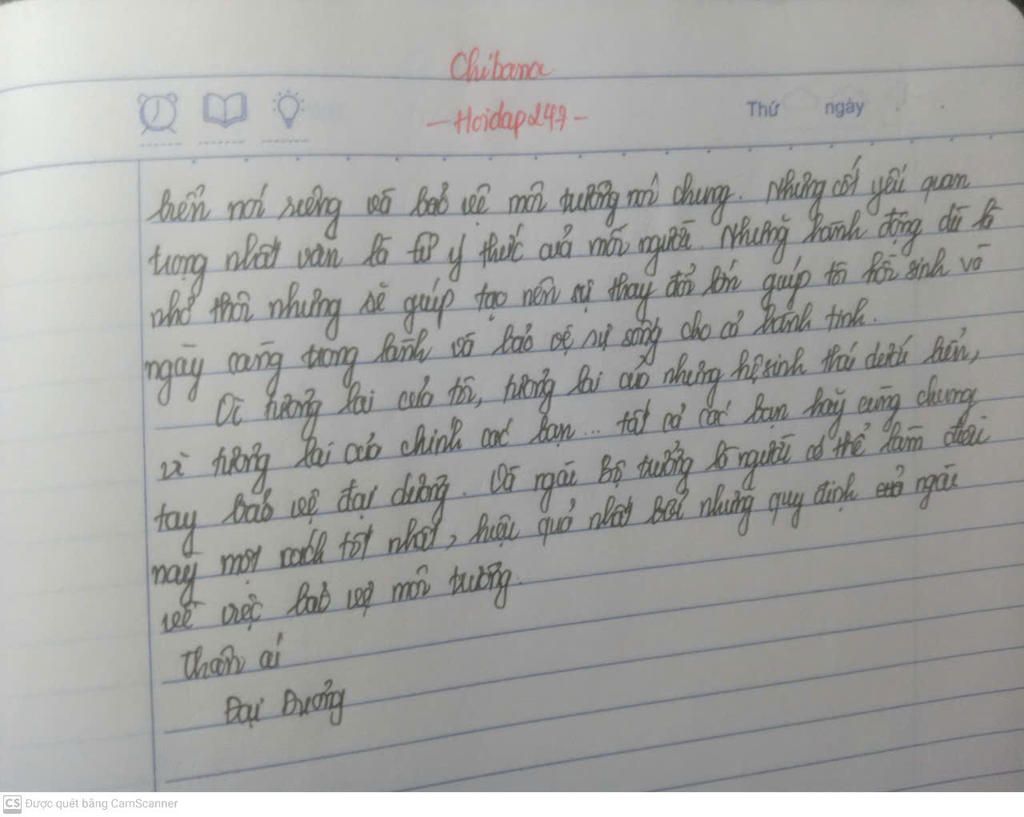 Chibana
-Hoidap247-
Thứ ngày
biển nói riêng và bảo vệ môi trường nói chung. Nhưng cốt yếu quan
trọng nhất vẫn là từ ý thức của mỗi người. Những hành động dù là
nhỏ thôi nhưng sẽ giúp tạo nên sự thay đổi lớn giúp tôi hồi sinh và
ngày càng trong lành và bảo vệ sự sống cho cả hành tinh.
Vì tương lai của tôi, tương lai của những hệ sinh thái dưới biển,
vì tương lai của chính các bạn... tất cả các bạn hãy cùng chung
tay bảo vệ đại dương. Và ngài Bộ trưởng là người có thể làm điều
này một cách tốt nhất, hiệu quả nhất bởi những quy định của ngài
về việc bảo vệ môi trường.
Thân ái
Đại Dương
CS Được quét bằng CamScanner